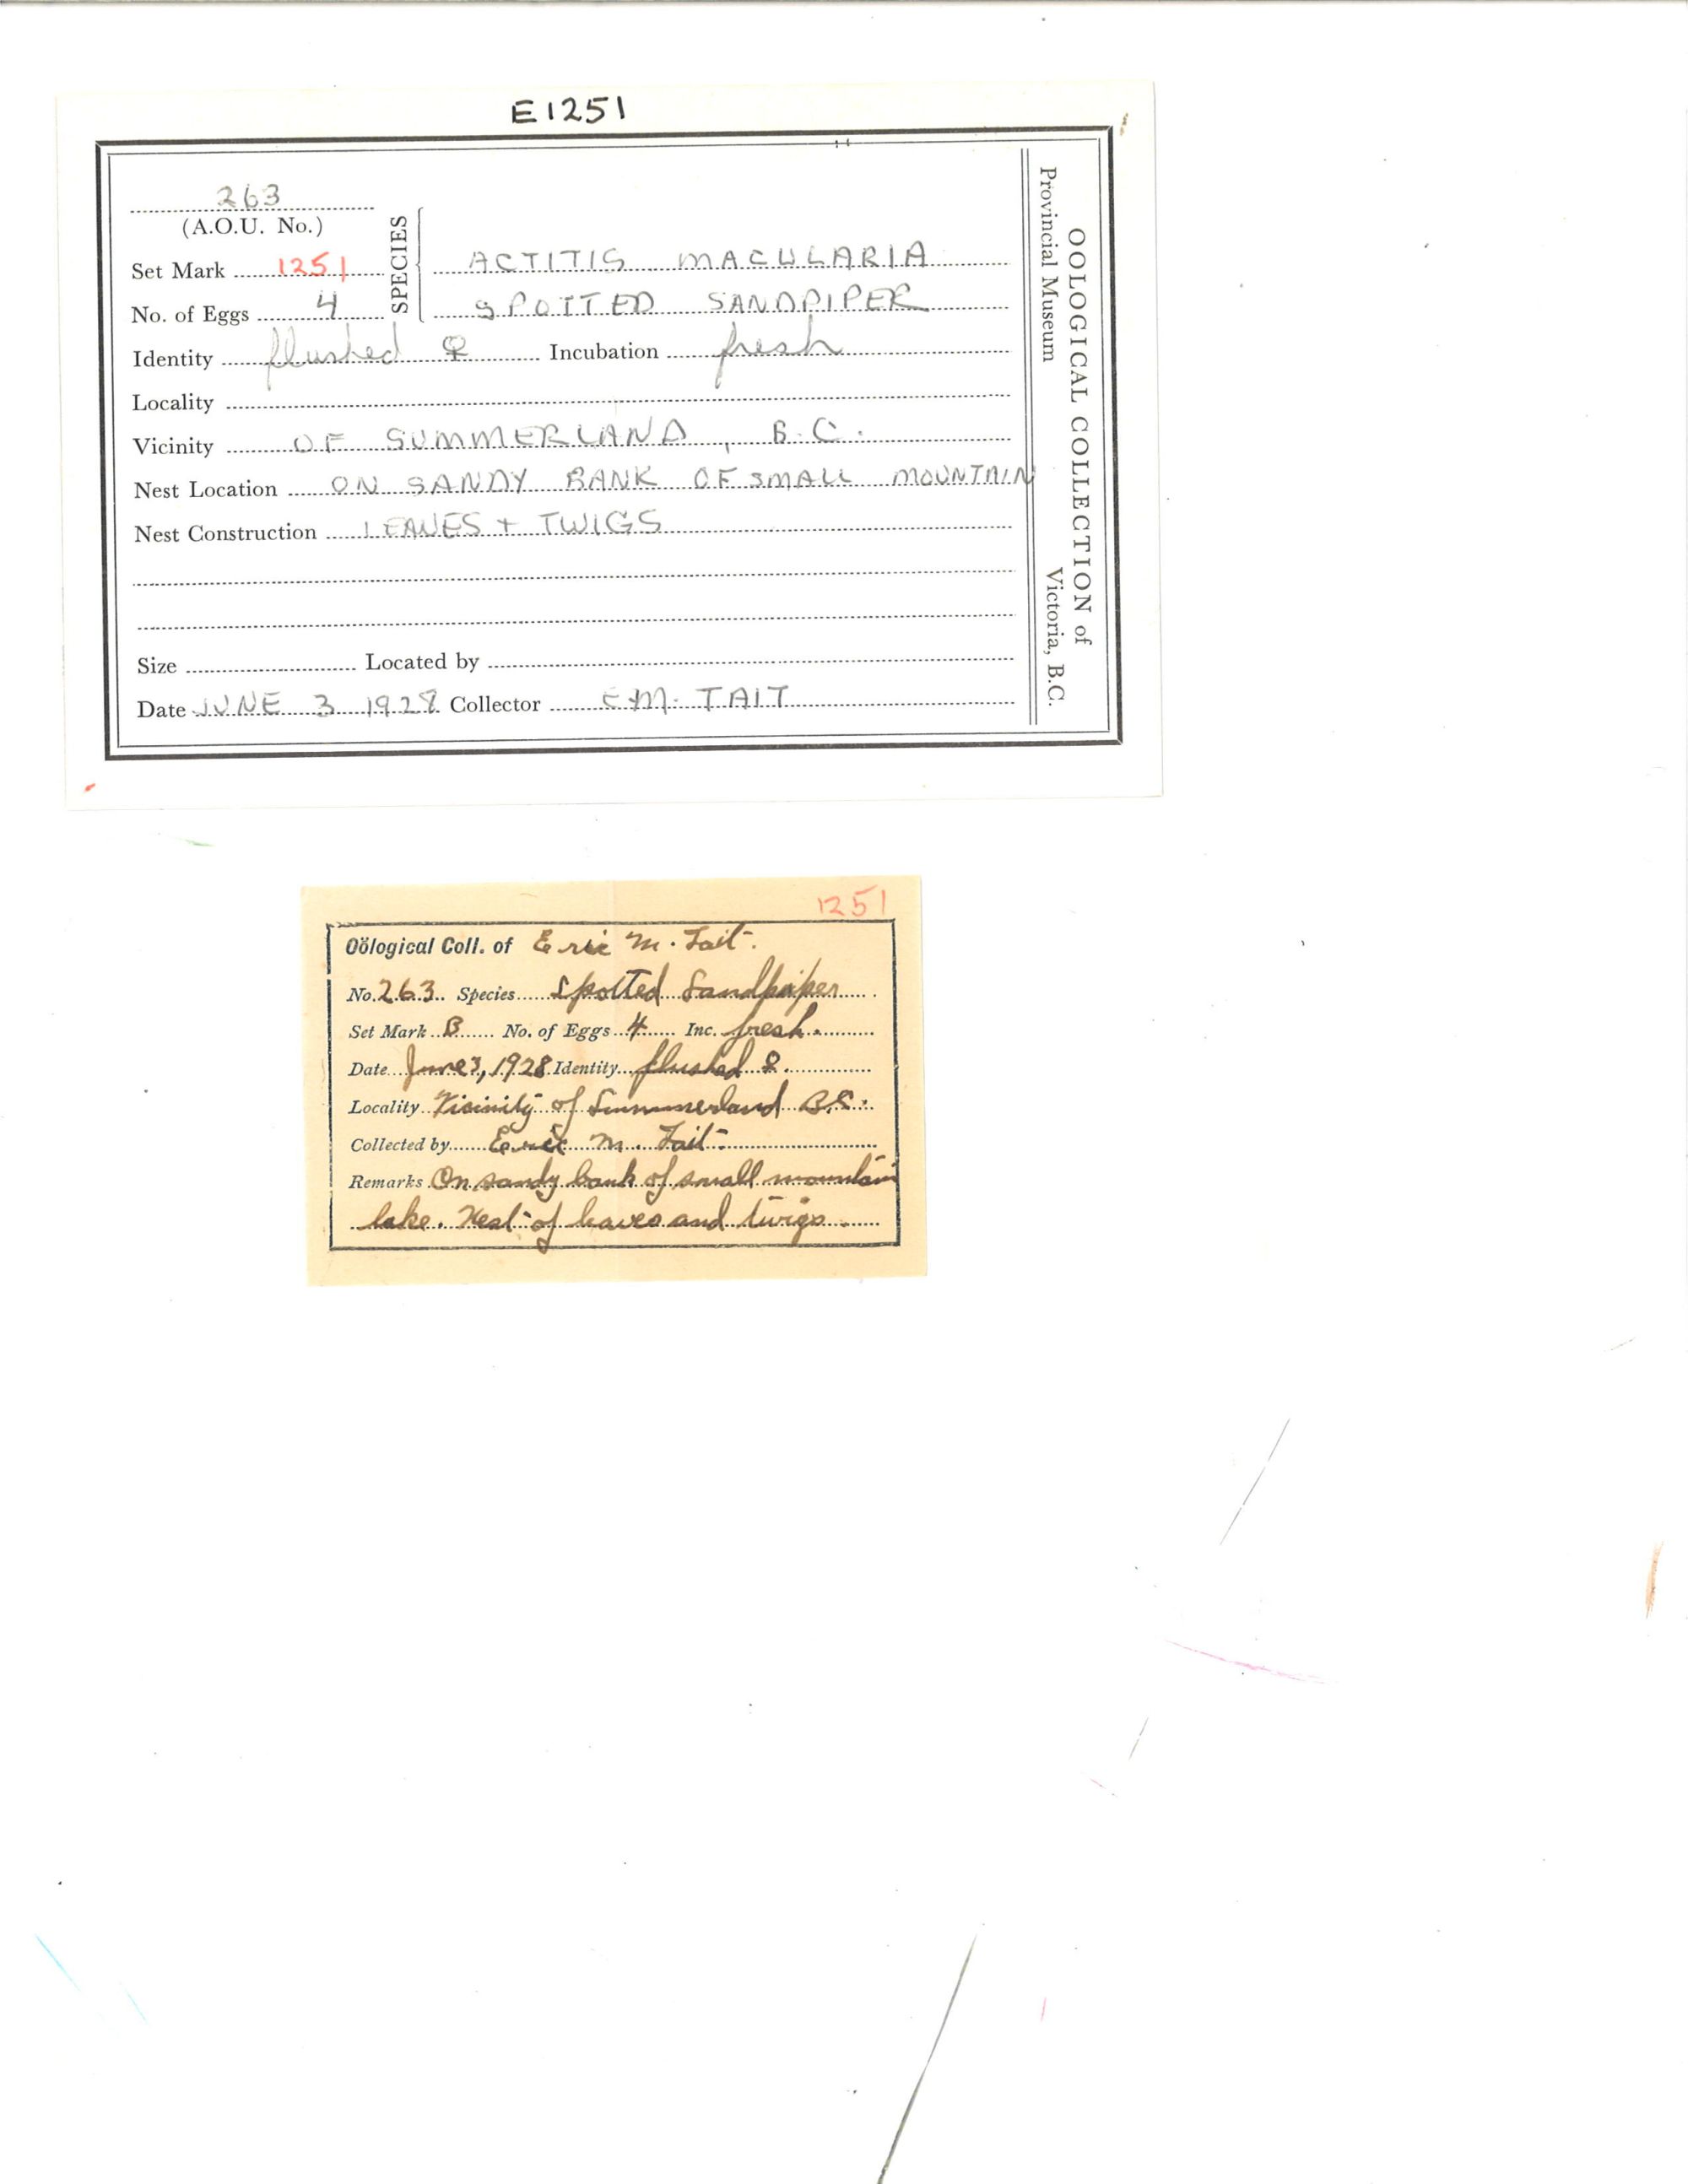 E1251
263
(A.O.U. No.)
SPECIES
Set Mark 1251 ACTITIS MACULARIA
No. of Eggs 4 SPOTTED SANDPIPER
Identity flushed ♀ Incubation fresh
Locality
Vicinity OF SUMMERLAND, B.C.
Nest Location ON SANDY BANK OF SMALL MOUNTAIN
Nest Construction LEAVES + TWIGS
Size Located by
Date JUNE 3 1928 Collector E.M. TAIT
OOLOGICAL COLLECTION of
Provincial Museum Victoria, B.C.
1251
Oölogical Coll. of Eric M. Tait.
No. 263 Species Spotted Sandpiper
Set Mark B No. of Eggs 4 Inc. fresh.
Date June 3, 1928 Identity flushed ♀.
Locality Vicinity of Summerland B.C.
Collected by Eric M. Tait
Remarks On sandy bank of small mountain
lake. Nest of leaves and twigs